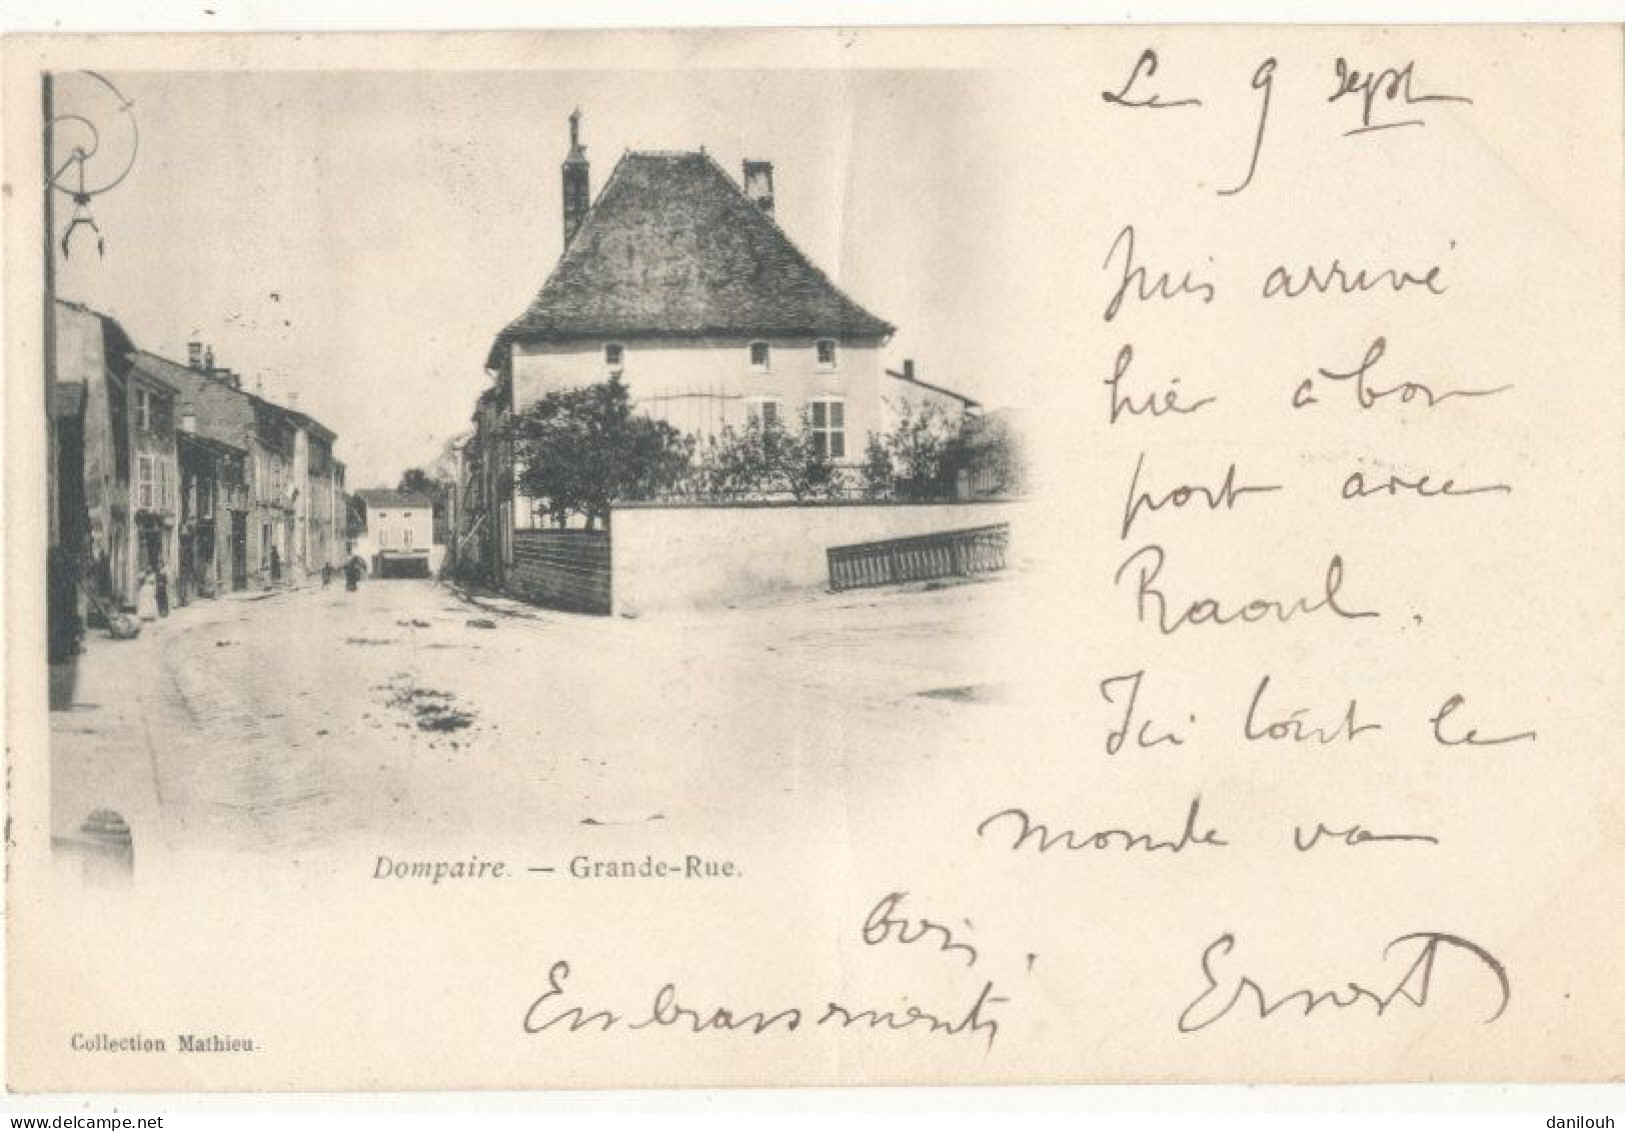 Le 9 Sept
Suis arrivé
hier à bon
port avec
Raoul.
Ici tout le
monde va
bien.
Embrassements
Ernest
Dompaire. — Grande-Rue.
Collection Mathieu.
delcampe.net
danilouh